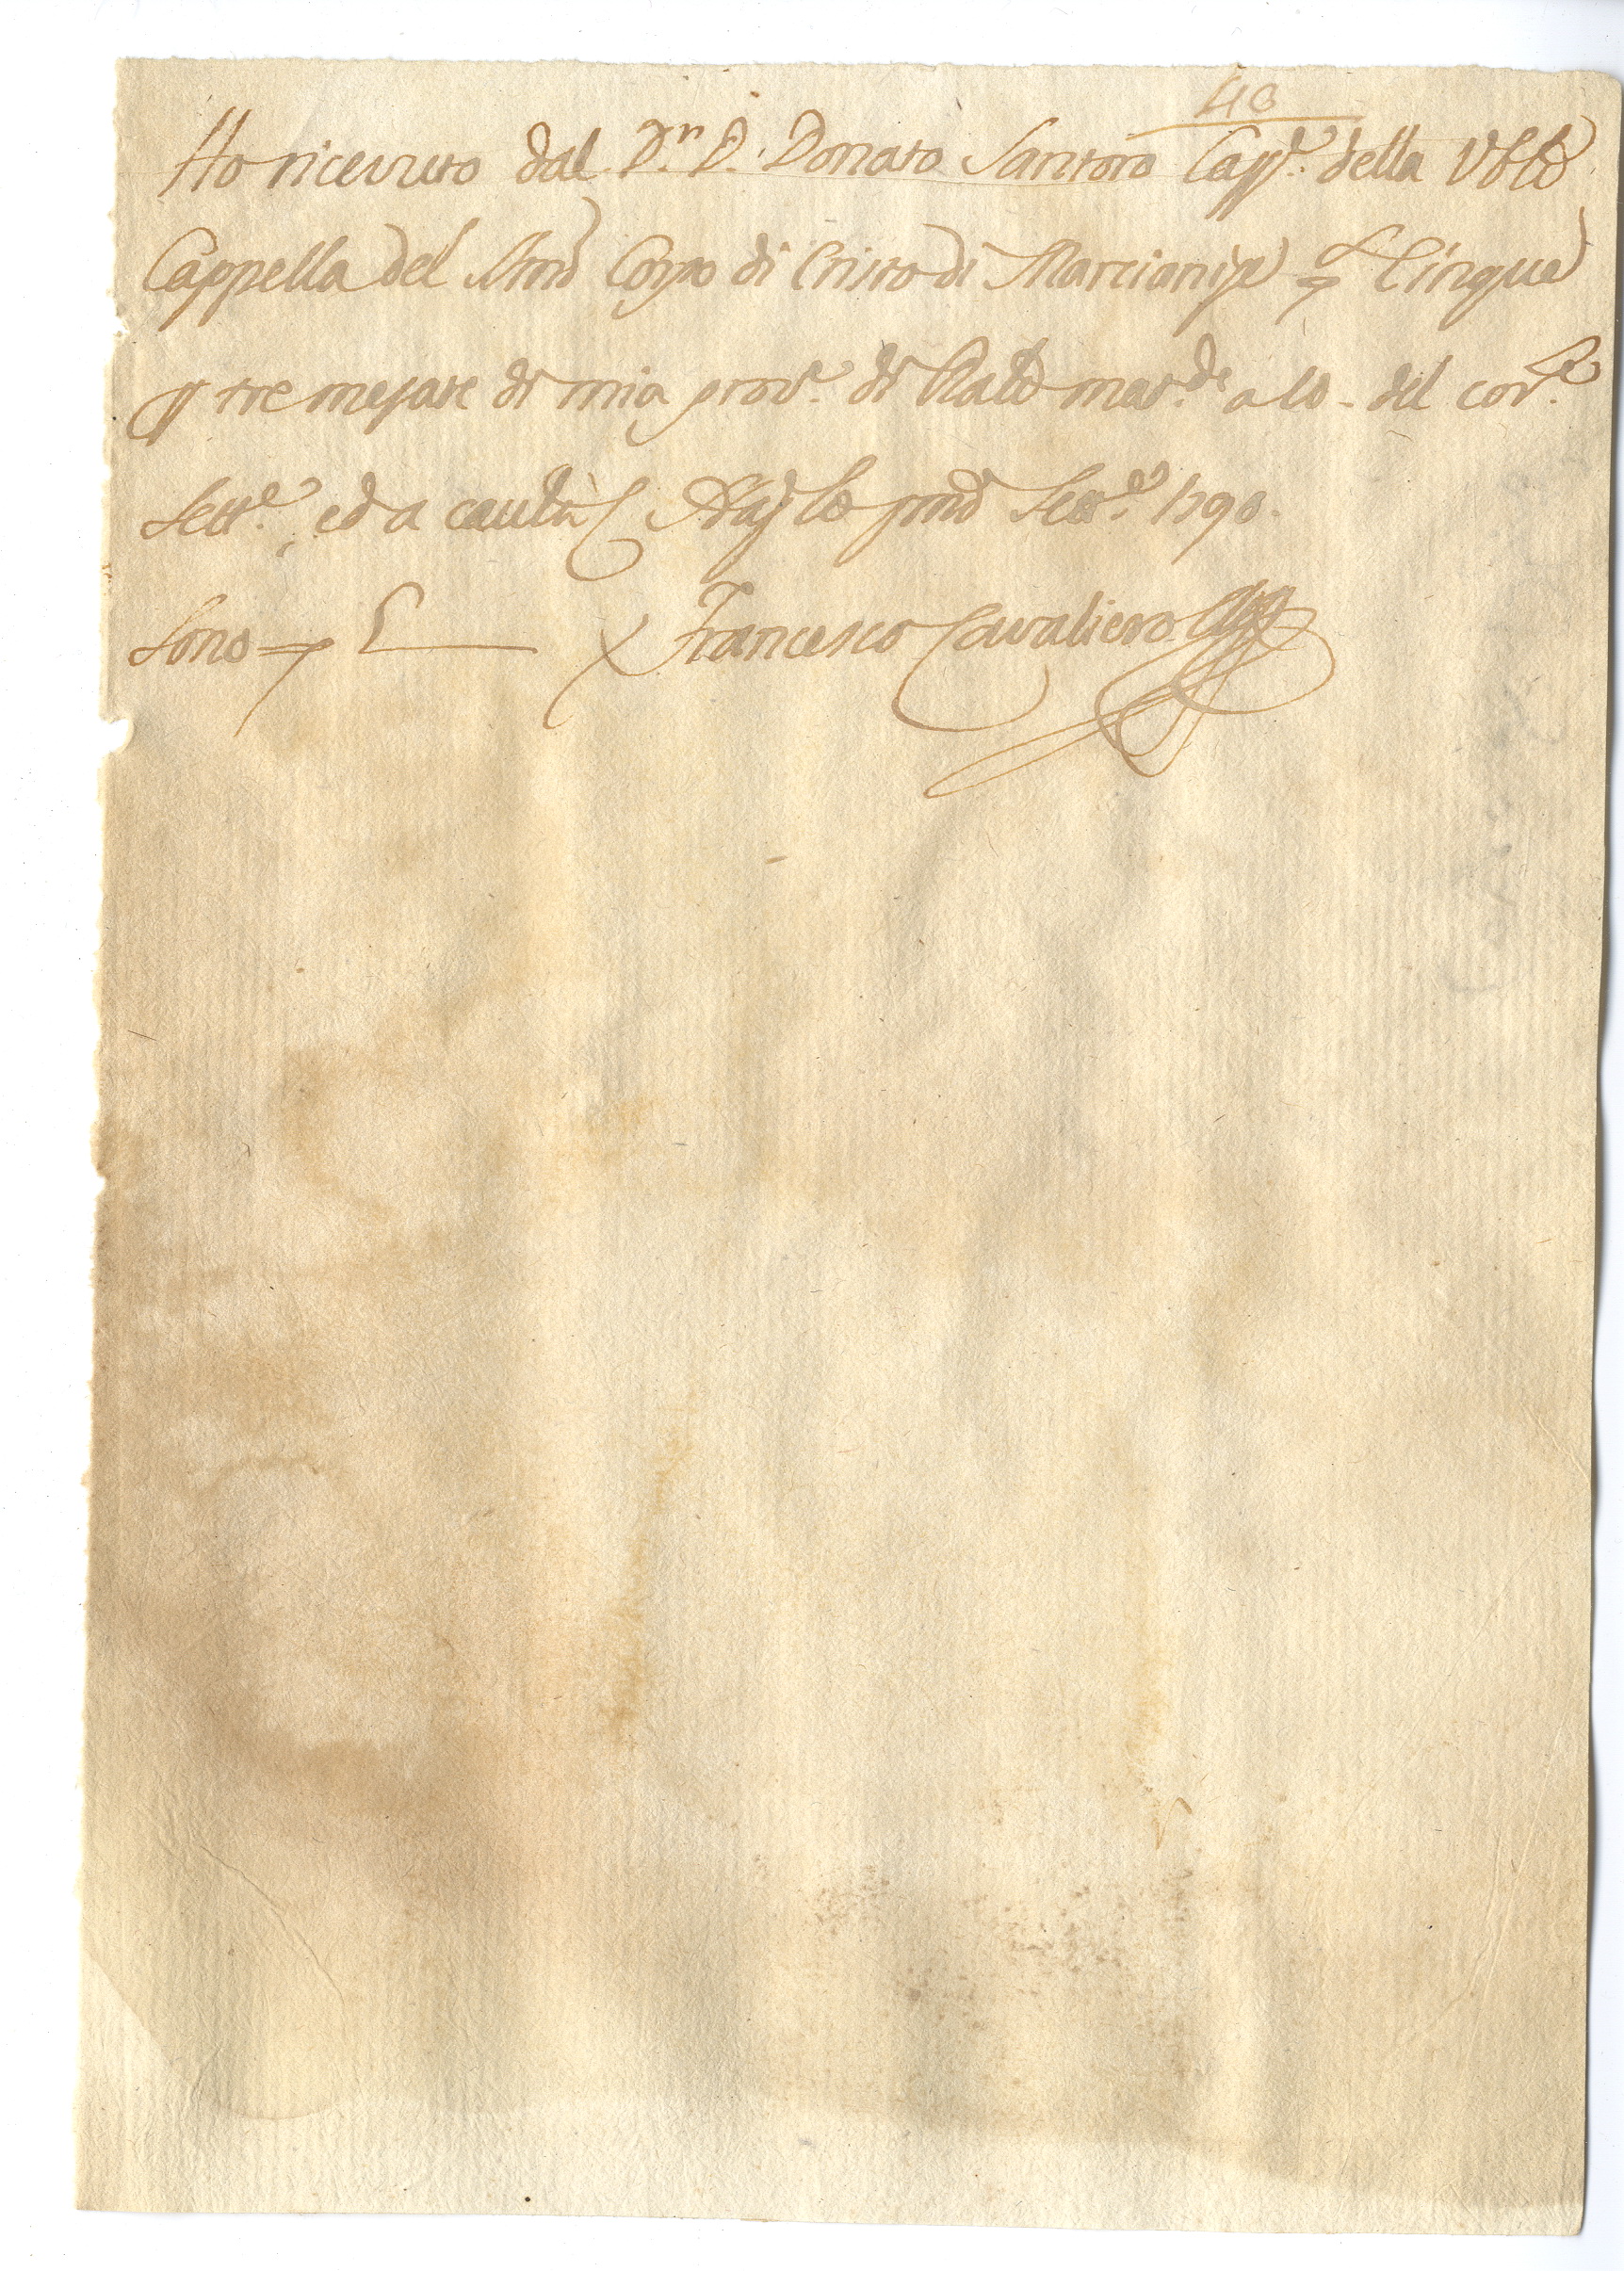 48
Ho ricevuto dal D.r D. Donato Santoro Capp.e della
Cappella del Corpo di Cristo di Marcianise Cinque
tre mesate di mia prov.e di mat.de a 10 del cor.e
Sett.e, ed a caut.a Sett.e 1790.
Sono 5 Francesco Cavaliero